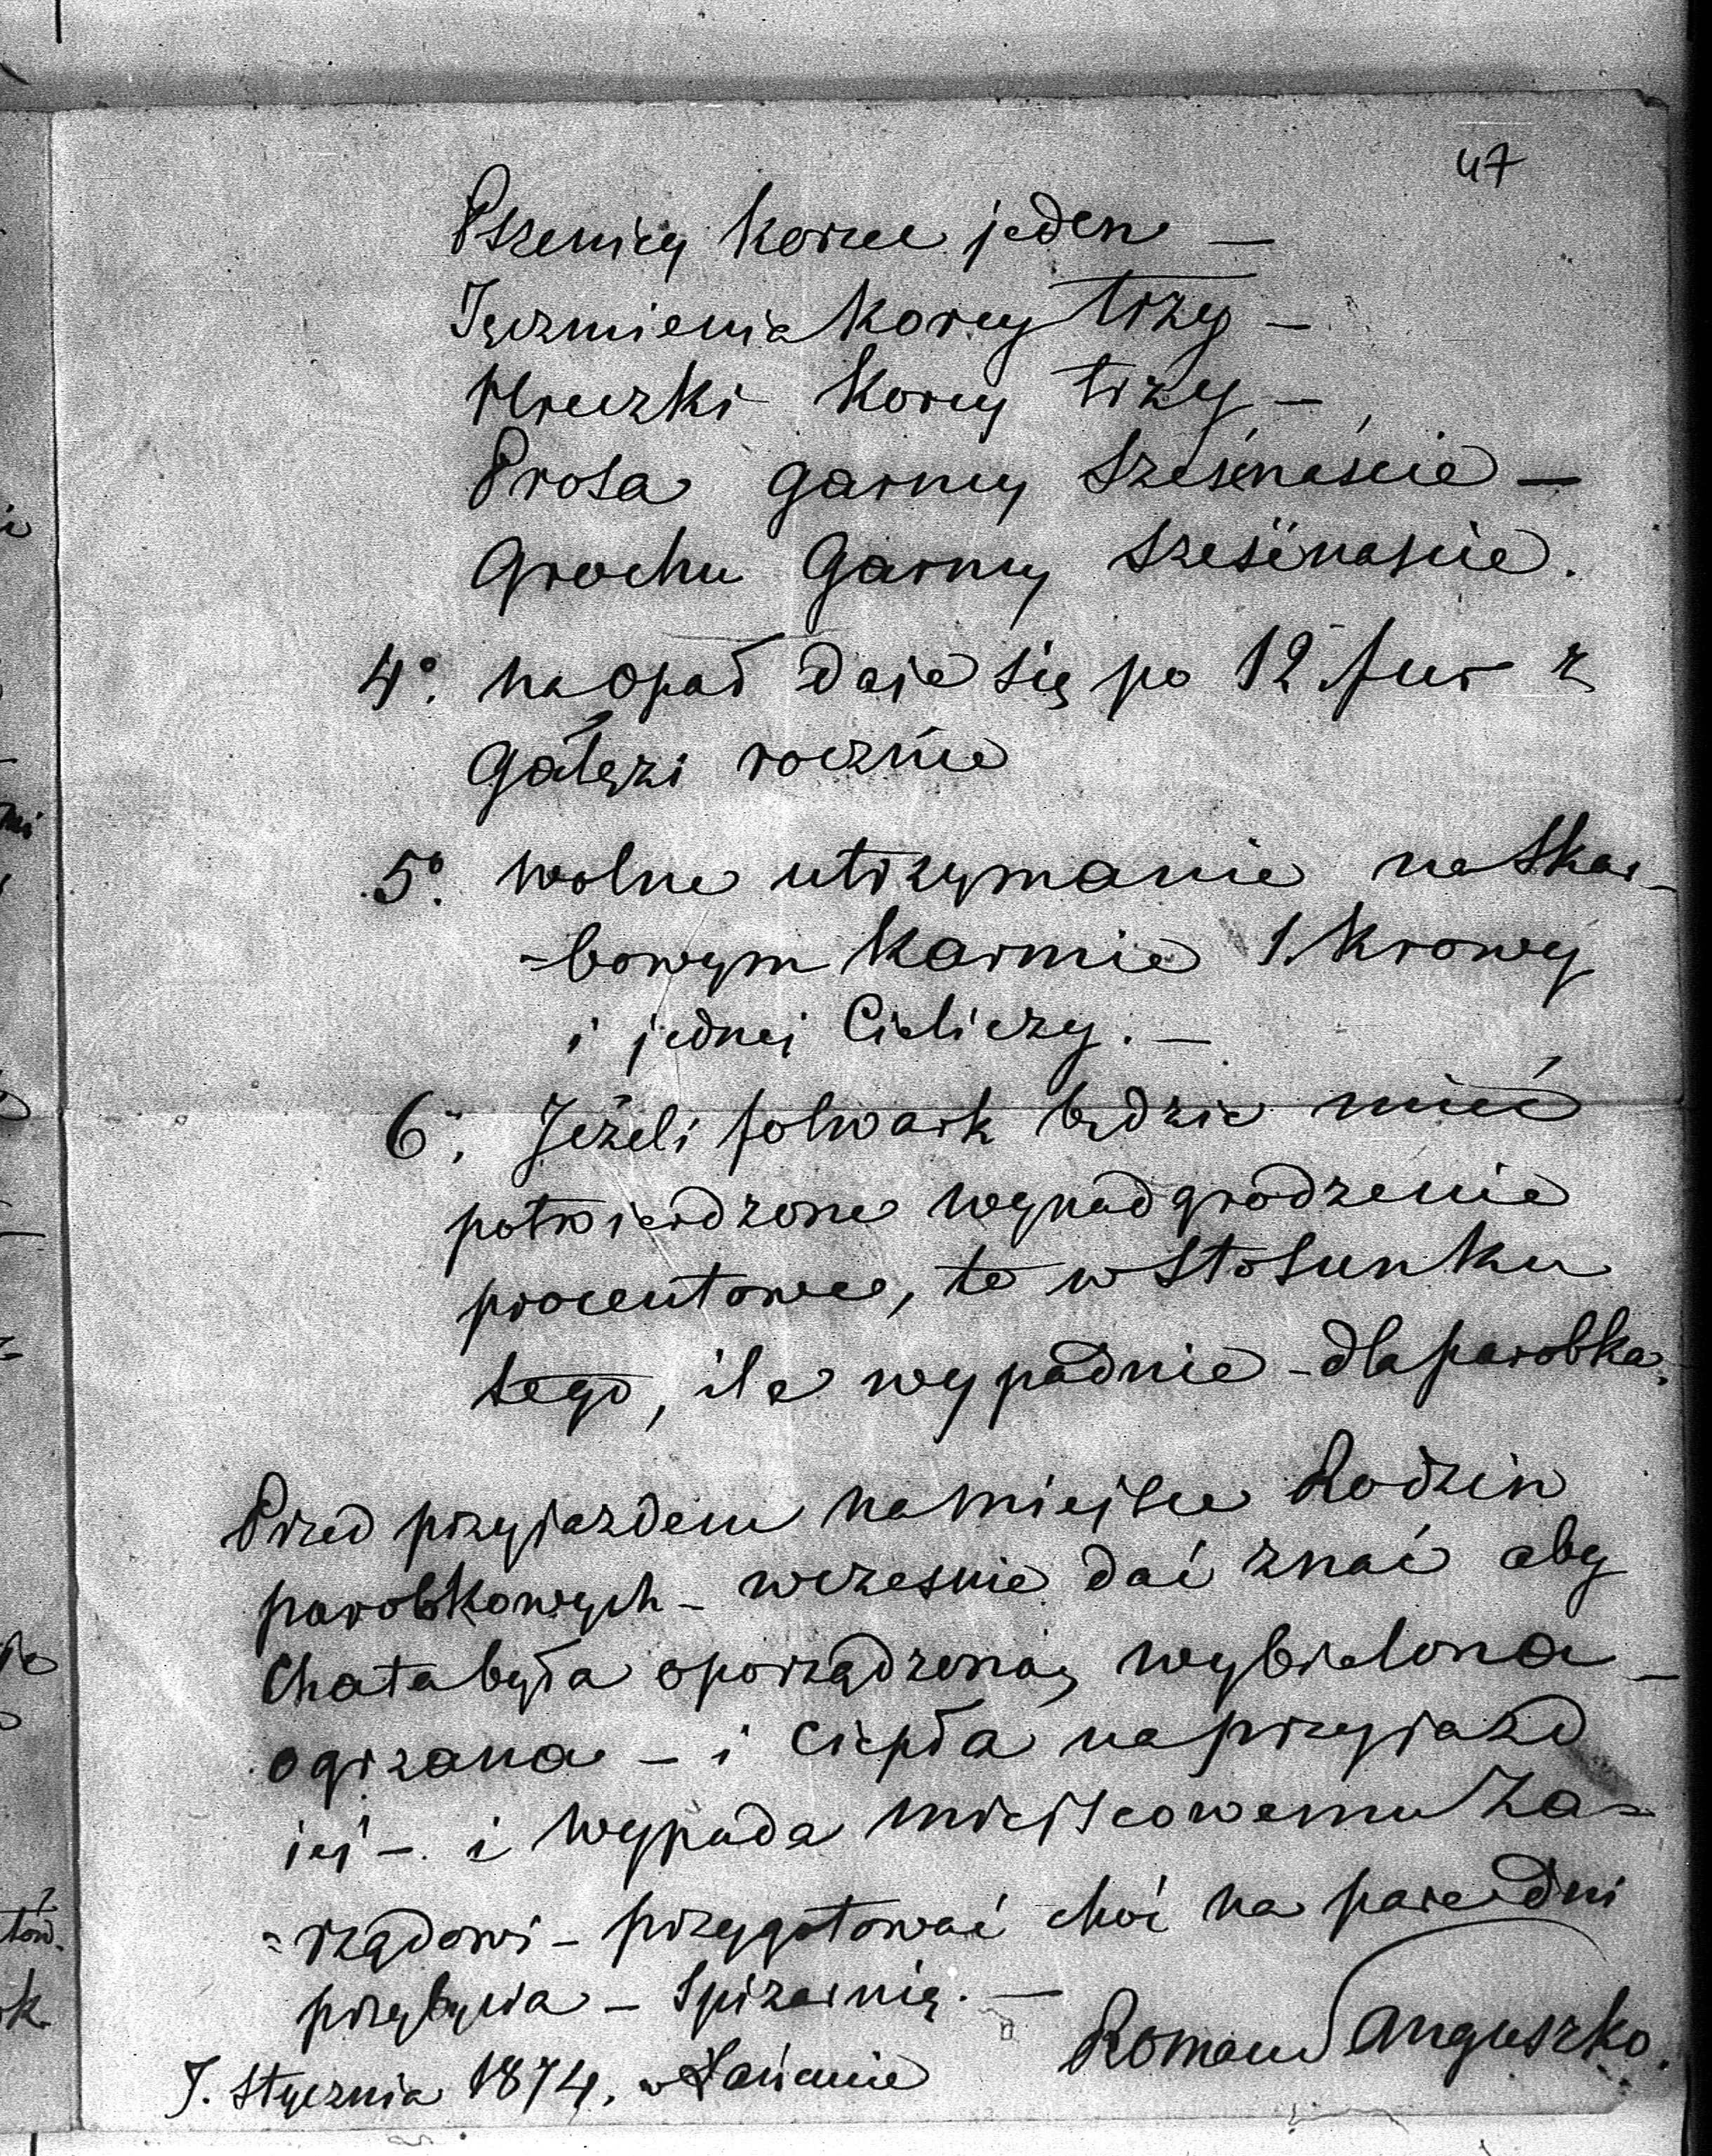 47
Pszenicy korzec jeden —
Jęczmienia korcy trzy —
Hreczki korcy trzy —
Prosa garncy szesnaście —
Grochu Garncy szesnaście.
4°. na opał daje się po 12 fur z
Gałęzi rocznie
5°. wolne utrzymanie na skar-
-bowym karmie 1. krowy
i jednej Cieliczy. —
6°. Jeżeli folwark będzie mieć
potwierdzone wynadgrodzenie
procentowe, to w stosunku
tego, ile wypadnie - dla parobka.
Przed przyjazdem na miejsce Rodzin
parobkowych - wcześnie dać znać aby
Chata była oporządzona, wybielona —
ogrzana — i ciepła na przyjazd
ich —. i wypada miejscowemu Za=
=rządowi — przygotować choć na parę dni
przybycia — Spiżarnię. —
Roman Sanguszko.
7. Stycznia 1874. w